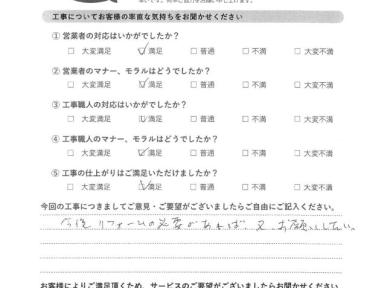 工事についてお客様の率直な気持ちをお聞かせください
① 営業者の対応はいかがでしたか？
□ 大変満足 ☑ 満足 □ 普通 □ 不満 □ 大変不満
② 営業者のマナー、モラルはどうでしたか？
□ 大変満足 ☑ 満足 □ 普通 □ 不満 □ 大変不満
③ 工事職人の対応はいかがでしたか？
□ 大変満足 ☑ 満足 □ 普通 □ 不満 □ 大変不満
④ 工事職人のマナー、モラルはどうでしたか？
□ 大変満足 ☑ 満足 □ 普通 □ 不満 □ 大変不満
⑤ 工事の仕上がりはご満足いただけましたか？
□ 大変満足 ☑ 満足 □ 普通 □ 不満 □ 大変不満
今回の工事につきましてご意見・ご要望がございましたらご自由にご記入ください。
今後リフォームの必要があれば、又お願いしたい。
お客様によりご満足頂くため、サービスのご要望がございましたらお聞かせください